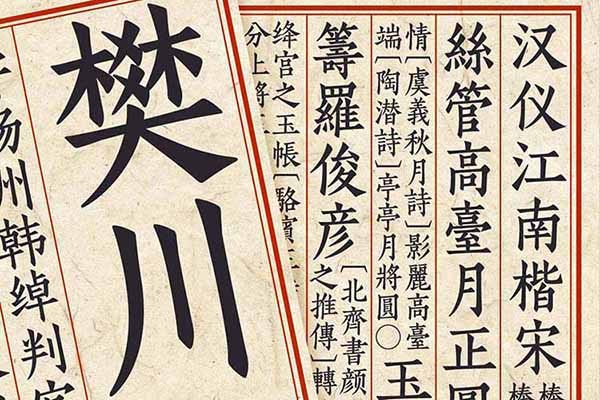 汉仪江南楷宋
絲管高臺月正圓
情〔虞義秋月詩〕影麗高臺
端〔陶潜詩〕亭亭月將圓〇
玉
籌羅俊彦
〔北齊書颜
之推傳〕轉
绛宫之玉帳〔駱賓
分上將
樊川
扬州韩绰判